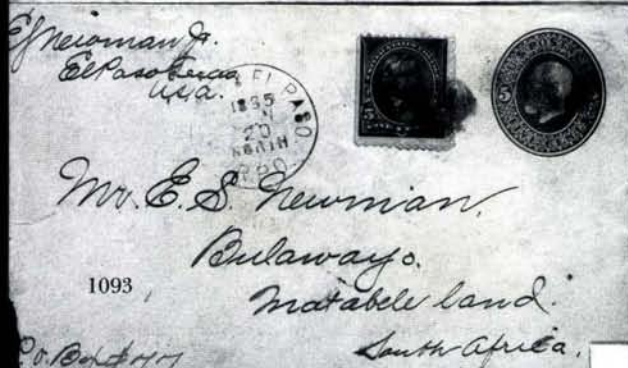 E S Newman Jr.
El Paso Texas
U.S.A.
EL PASO
1895
20
R.P.O.
5
5
Mr. E. S. Newman.
Bulawayo.
Matabele land.
South Africa.
1093
P.O. Box 77